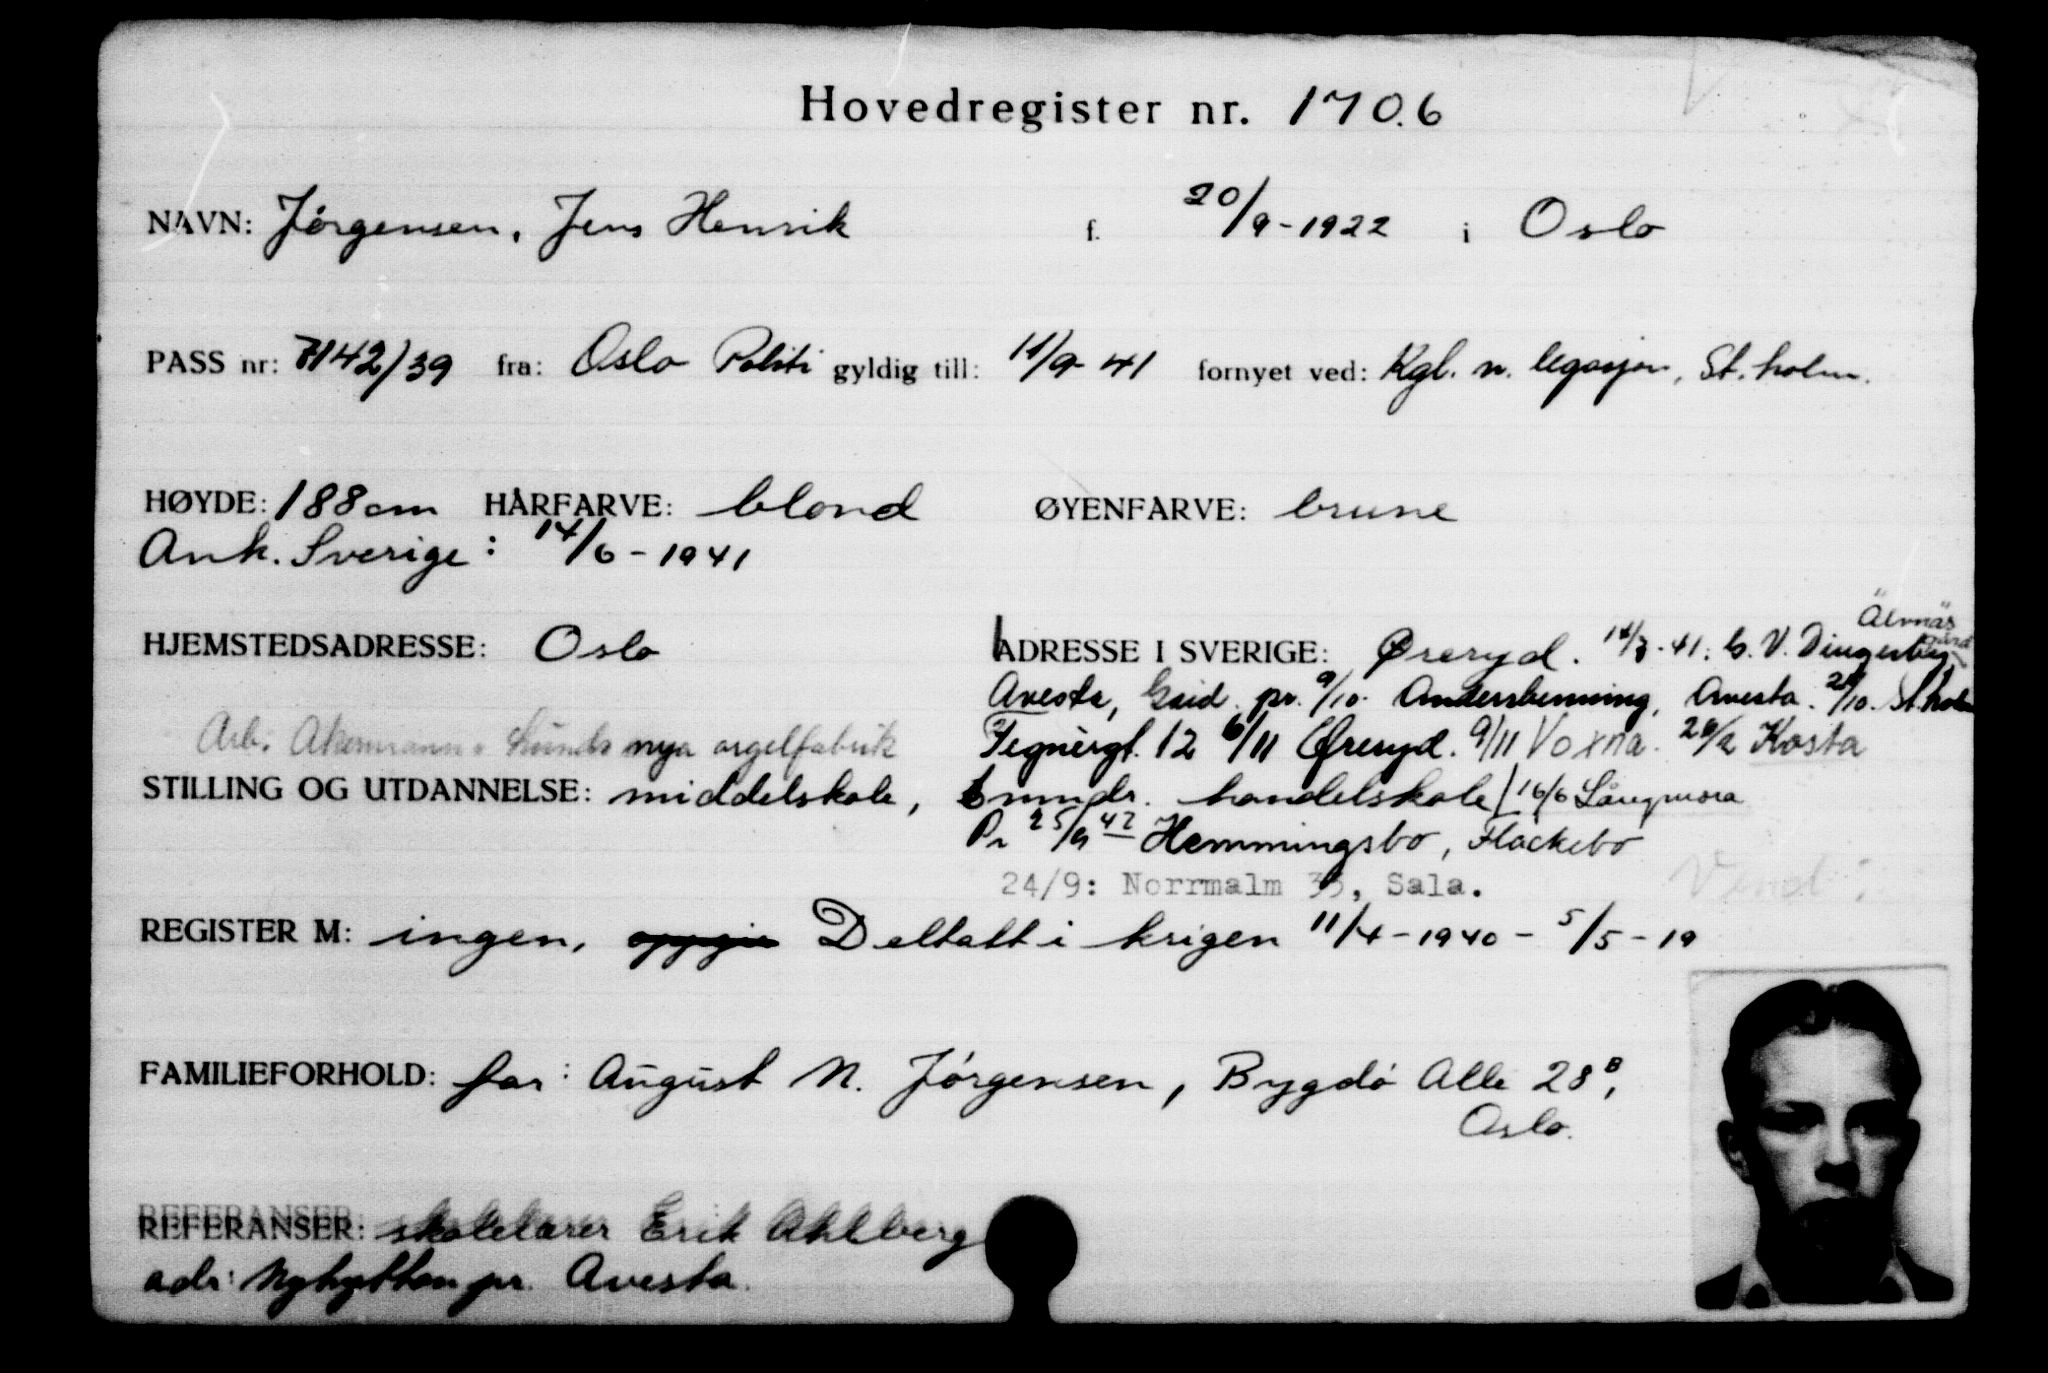 Hovedregister nr. 1706
NAVN: Jørgensen, Jens Henrik f. 20/9-1922 i Oslo
PASS nr: 7142/39 fra: Oslo Politi gyldig till: 11/9-41 fornyet ved: Kgl. n. legasjon, St.holm.
HØYDE: 188 cm HÅRFARVE: blond ØYENFARVE: brune
Ank. Sverige: 14/6-1941
Älvnäs
HJEMSTEDSADRESSE: Oslo ADRESSE I SVERIGE: Øreryd. 41:
Avesta, pr. 9/10. Andersbenning, Avesta. /10. St.holm
Arb. Åkermann & Lunds nya orgelfabrik Tegnérgt. 12 6/11 Øreryd. 9/11 Voxna. Kosta
STILLING OG UTDANNELSE: middelskole, handelskole / 16/6 Långmora
25/ 42 Hemmingsbo, Fläckebo
24/9: Norrmalm 33, Sala. Vend!
REGISTER M: ingen, Deltatt i krigen 11/4-1940 - 5/5-19
FAMILIEFORHOLD: far: August N. Jørgensen, Bygdö Alle 28B,
Oslo.
REFERANSER: skolelærer Erik Ahlberg
adr: Nyhyttan pr. Avesta.